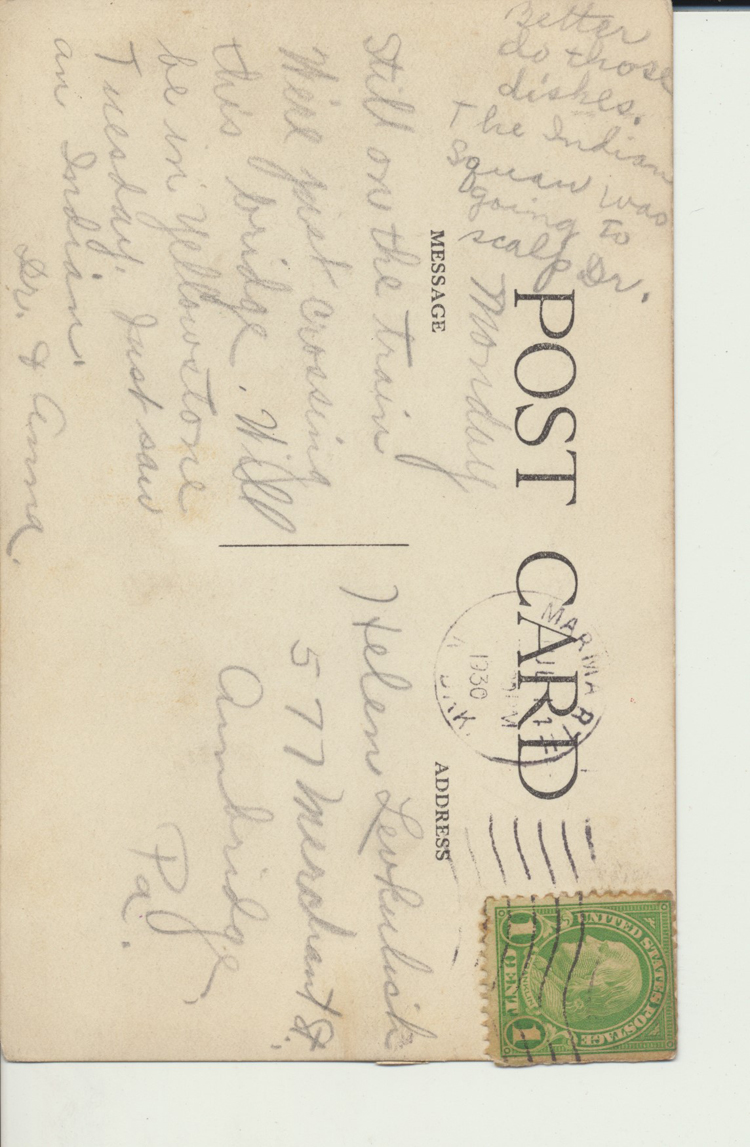 Better
do those
dishes.
the Indian
squaw was
going to
scalp Dr.
POST CARD
MESSAGE
ADDRESS
Monday
Still on the train
We're just crossing
this bridge. Will
be in Yellowstone
Tuesday. Just saw
an Indian.
Dr. & Anna.
MARMAR
JUL
PM
1930
DAK.
UNITED STATES POSTAGE
FRANKLIN
1 CENT 1
Helen
577 Merchant St.
Ambridge,
Pa.